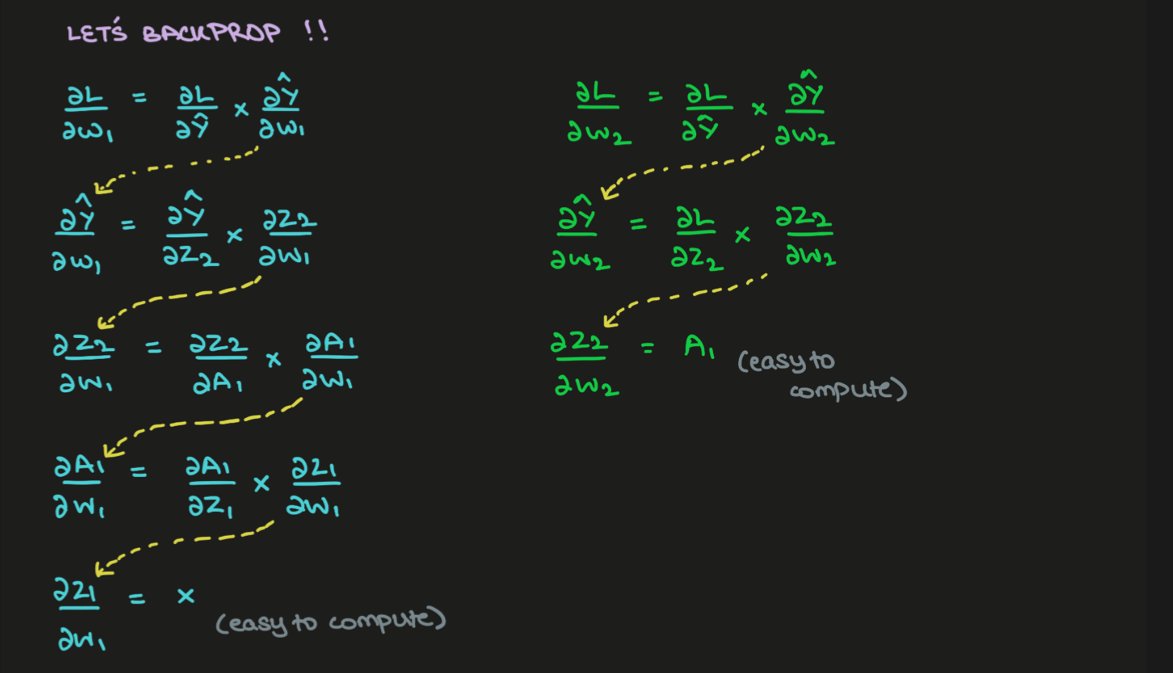 LET'S BACKPROP !!
∂L/∂W₁ = ∂L/∂Ŷ × ∂Ŷ/∂W₁
∂Ŷ/∂W₁ = ∂Ŷ/∂Z₂ × ∂Z₂/∂W₁
∂Z₂/∂W₁ = ∂Z₂/∂A₁ × ∂A₁/∂W₁
∂A₁/∂W₁ = ∂A₁/∂Z₁ × ∂Z₁/∂W₁
∂Z₁/∂W₁ = X
(easy to compute)
∂L/∂W₂ = ∂L/∂Ŷ × ∂Ŷ/∂W₂
∂Ŷ/∂W₂ = ∂L/∂Z₂ × ∂Z₂/∂W₂
∂Z₂/∂W₂ = A₁
(easy to
compute)